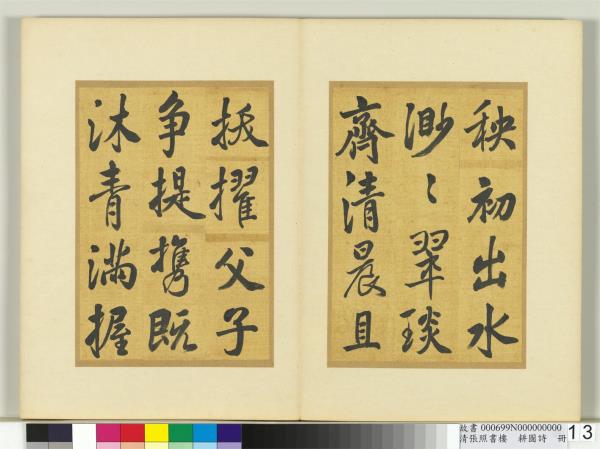 秧初出水
渺〻翠琰
齊清晨且
拔擢父子
争提携既
沐青滿握
故書 000699N000000000
清張照書樓　耕圖詩　冊
13